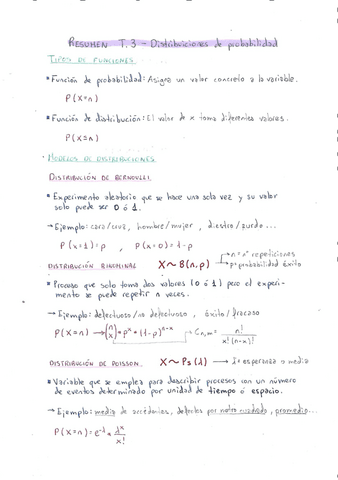 RESUMEN T.3 – Distribuciones de probabilidad
TIPOS DE FUNCIONES
* Función de probabilidad: Asigna un valor concreto a la variable.
P(X=n)
* Función de distribución: El valor de x toma diferentes valores.
P(X≤n)
· MODELOS DE DISTRIBUCIONES
DISTRIBUCIÓN DE BERNOULLI.
* Experimento aleatorio que se hace una sola vez y su valor
solo puede ser 0 ó 1.
→ Ejemplo: cara/cruz, hombre/mujer, diestro/zurdo...
P(X=1)=p , P(X=0)=1-p
DISTRIBUCIÓN BINOMIAL X~B(n,p) → n = nº repeticiones
→ p = probabilidad éxito
* Proceso que solo toma dos valores (0 ó 1) pero el experi-
mento se puede repetir n veces.
→ Ejemplo: defectuoso/no defectuoso, éxito/fracaso
P(X=n) → (n x) * p^x * (1-p)^n-x → C n,x = n! / x!(n-x)!
DISTRIBUCIÓN DE POISSON. X~Ps(λ) → λ = esperanza o media
* Variable que se emplea para describir procesos con un número
de eventos determinado por unidad de tiempo ó espacio.
→ Ejemplo: media de accidentes, defectos por metro cuadrado, promedio...
P(X=n) = e^-λ * λ^x / x!